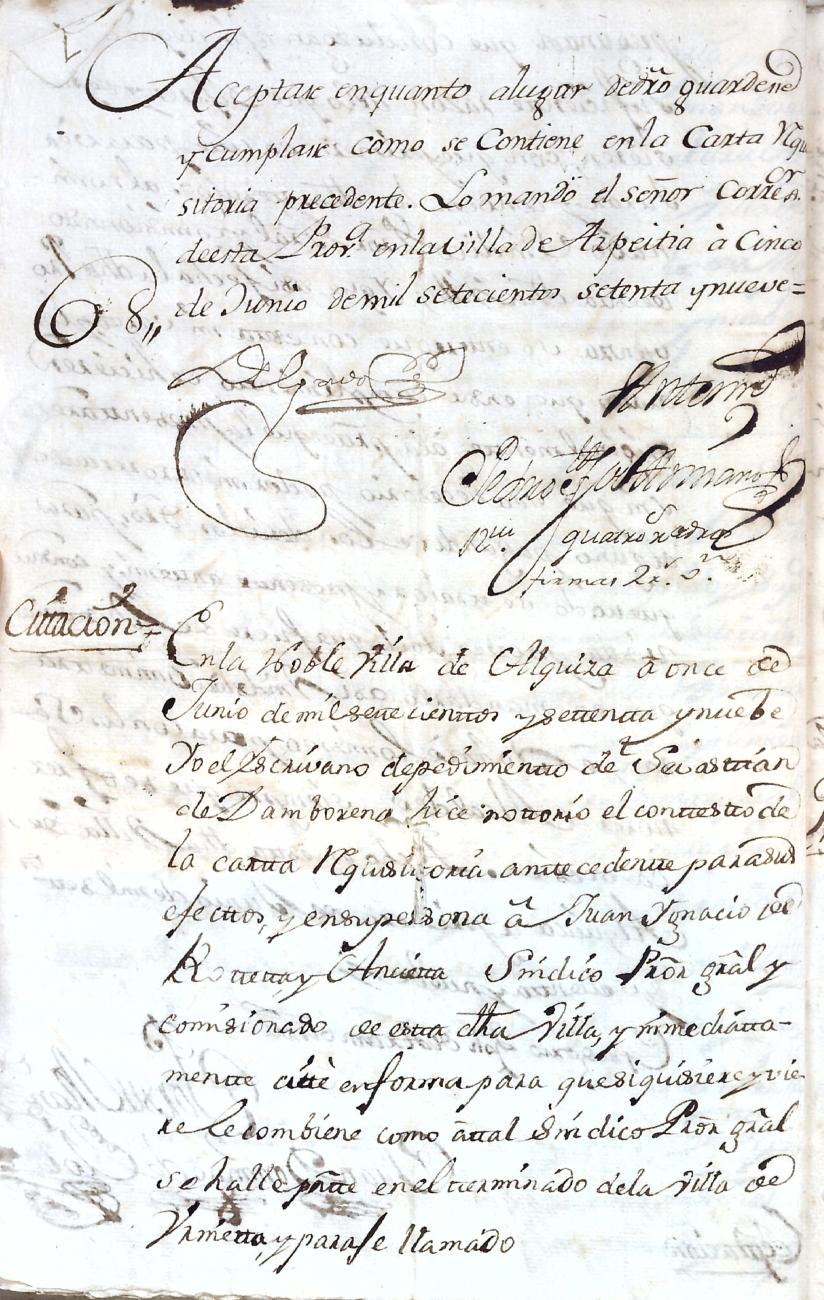 Aceptase enquanto a lugar dedrõ guardene
y Cumplase como se Contiene en la Carta Rqui
sitoria precedente. Lo mandò el señor Correxor.
de esta Prova. en la villa de Azpeitia à Cinco
de Junio de mil setecientos setenta y nueve=
Delgado
Antemi
Pedro
quatro rs
firmas 2 rs. vn.
Cittacion=
En la Noble Villa de Alquiza a once de
Junio de mil sette cienttos y settentta y nuebe
Yo el Escrivano depedimentto de Sevasttian
de Damborena hice nottorio el conttestto de
la cartta Rquisitoria anttecedentte para sus
efecttos, y en su persona â Juan Ygnacio de
Rottetta y Anciетta Sindico Prõr grãl y
comisionado de estta dha Villa, y inmediatta-
mentte cittè en forma para que si quisiere y vie
re le combiene como âttal Sindico Prõr grãl
se halle pñtte en el tterminado de la Villa de
Vrnietta, y parase llamado